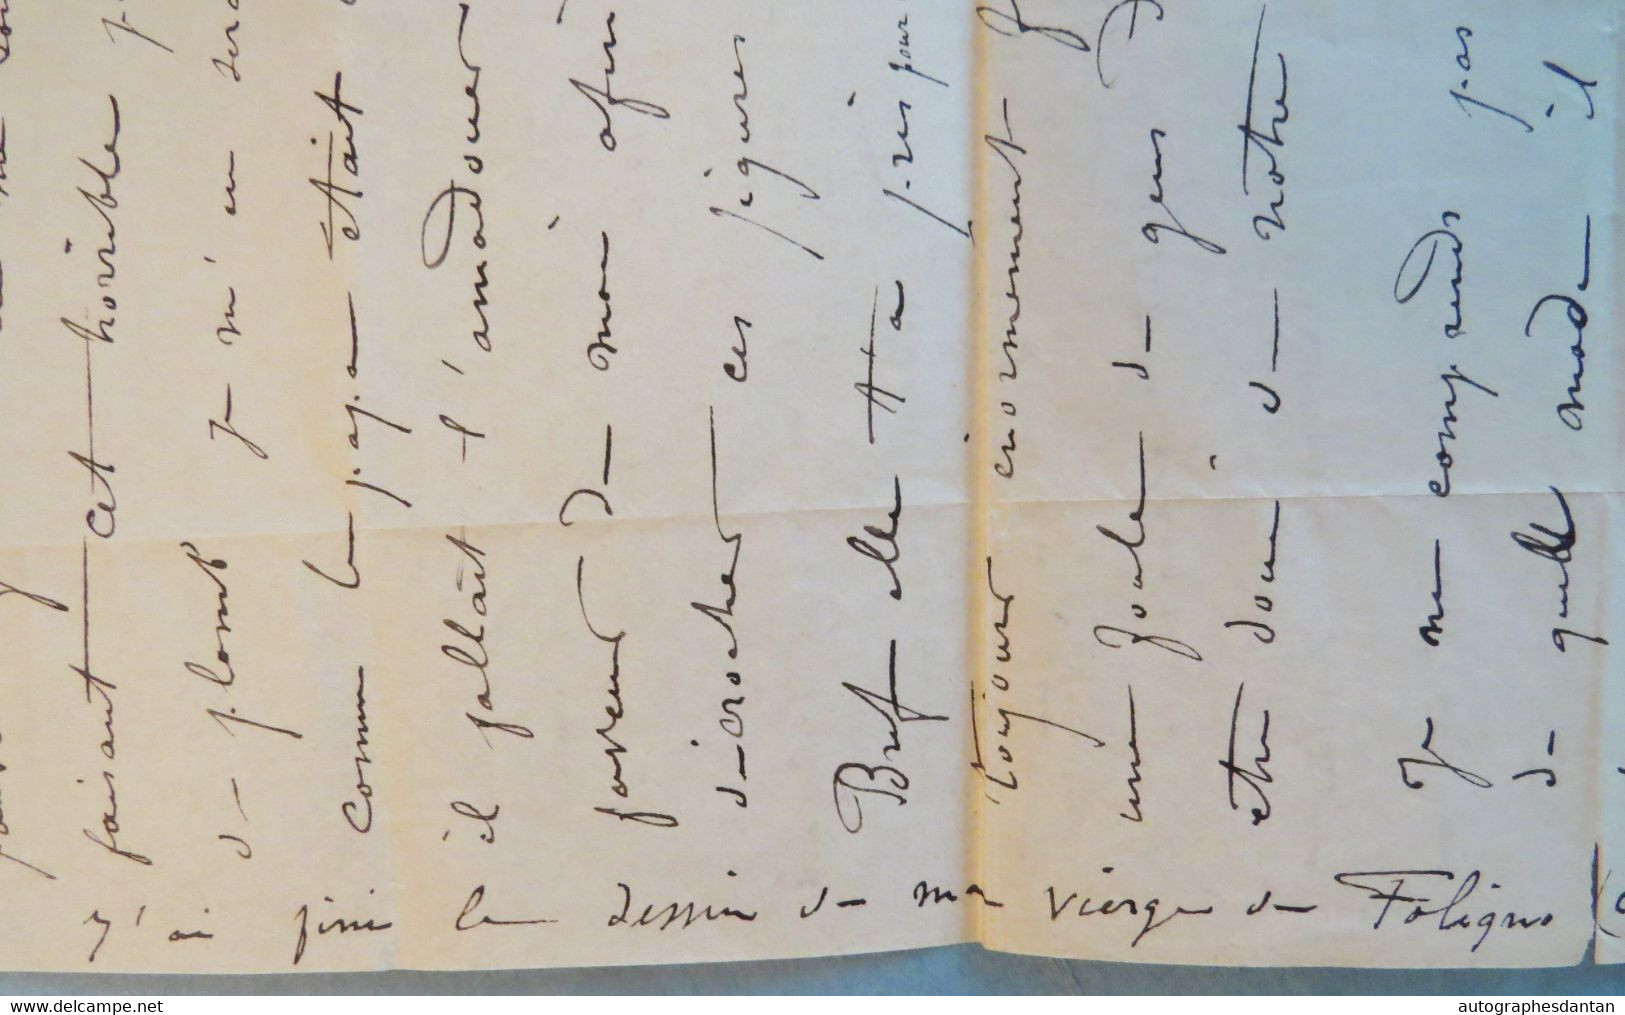 faisant cet horrible
de plomb je m'en
comme le pape était
il fallait l'amadouer
faveur de moi afin
décrocher ces figures
Bref elle t'a pris pour
toujours énormément
une foule de gens
être doué de notre
Je ne comprends pas
de quelle mode il
J'ai fini le dessin de ma vierge de Foligno
delcampe.net
autographesdantan